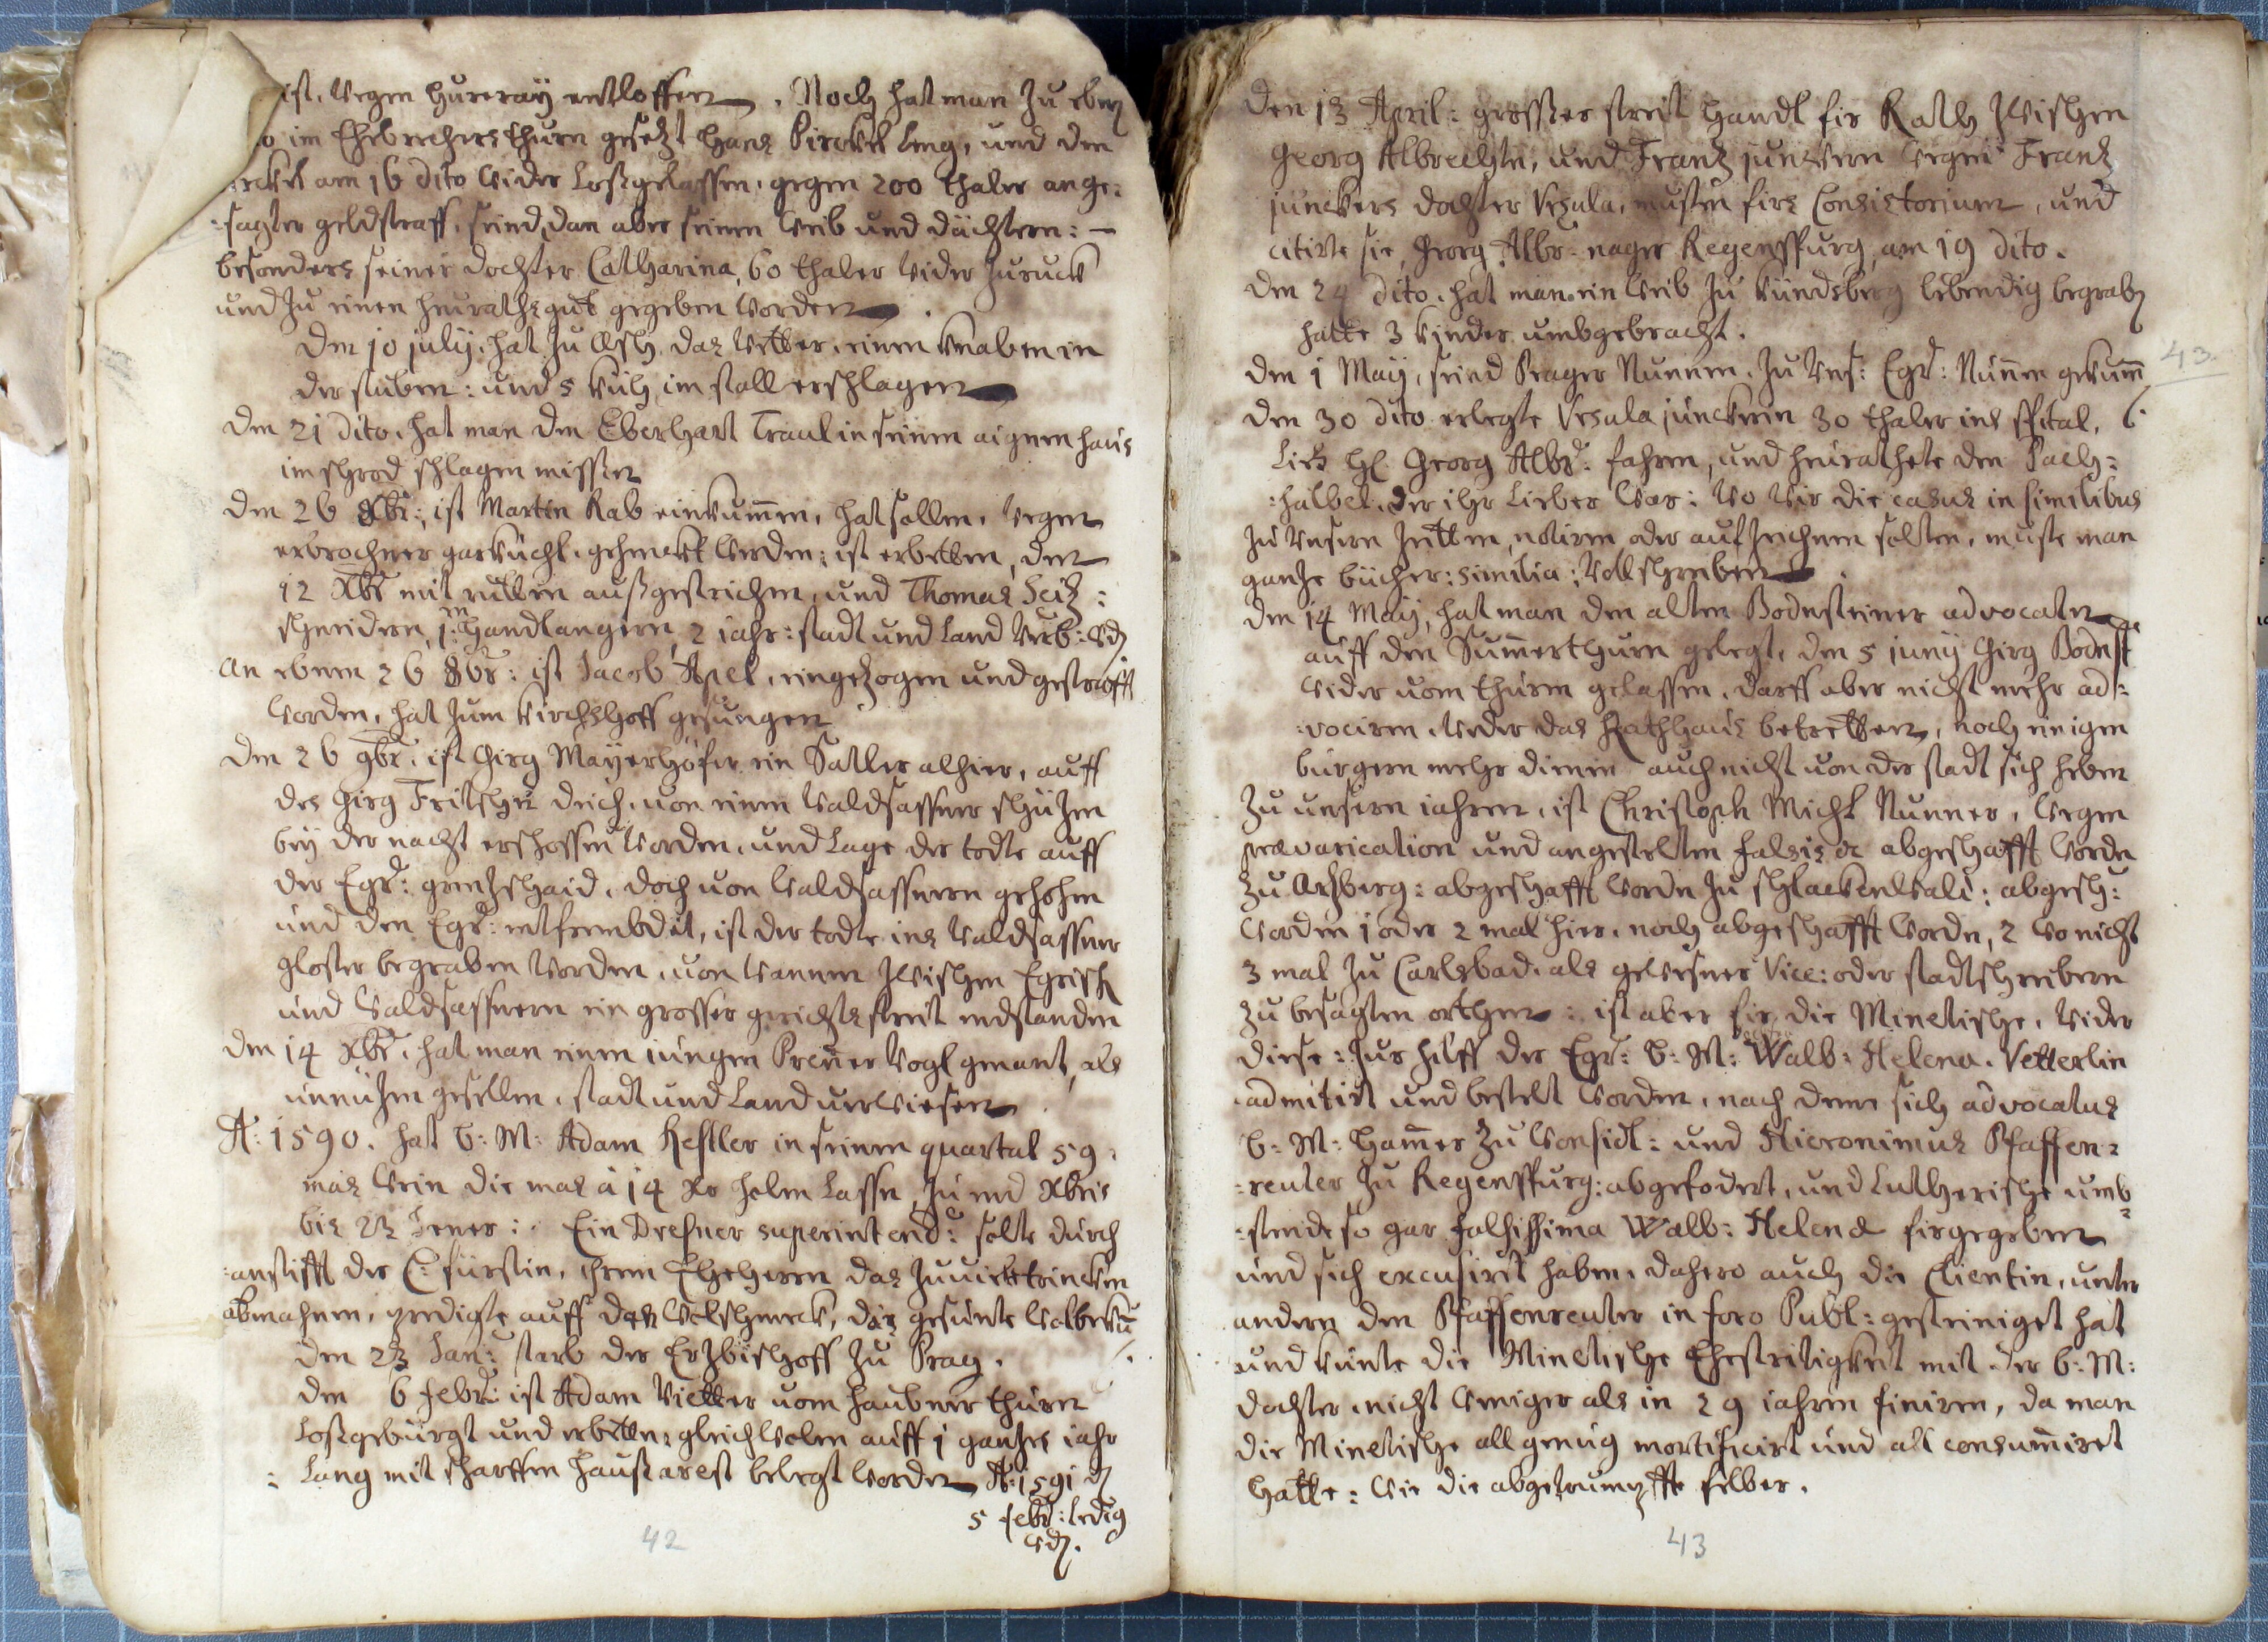 ist, wegen hureraÿ entloffen. Noch hat man zu eben
im Ehebrechersthurn gesetzt Hans Pirckel leng, und den
am 16 dito wider loßgelassen, gegen 200 thaler ange:
:sagter geldstraff, seind dan aber seinen weib und döchtern: –
besonders seiner dochter Catharina, 60 thaler wider zuruck
und zu einen heurathsgutt gegeben worden.
Den 10 julÿ, hat zu Asch das wetter, einen knaben in
der stuben: und 5 küh im stall erschlagen
Den 21 dito, hat man den Eberhart Traul in seinen aignen haus
im schrod schlagen missen
Den 26 8br:, ist Martin Rab einkummen, hat sollen, wegen
erbrochner garkuchl, gehenckt werden: ist erbetten, den
12 Xbr mit rutten außgestrichen, und Thomas Seitz:
schneidern, handlangern, 2 jahr: stadt und land verb: wdn
An eben 26 8br: ist Jacob Apel, eingezogen und gestrafft
worden, hat zum kirchhoff gesungen
Den 26 9br: ist Girg Mayerhöfer ein Satler alhier, auff
des Girg Fritschn deich, von einem Waldsassner schützen
beÿ der nacht erschossen worden, und lage der todte auff
der Egr: grentzschaid, doch von Waldsassnern gehohen
und den Egr: entfrembdet, ist der todte ins Waldsassner
gloster begraben worden, von wannen zwischen Egrisch
und Waldsassnern ein grosser gerichtsstreit endstanden
Den 14 Xbr: hat man einen jungen Breuer Vogl genant, als
unnützen gesellen, stadt und land verwiesen
A: 1590. hat B: M: Adam Hestler in seinem quartal 59:
mas wein die mas â 14 Xr holen lassn, zu end Xbris
bis 23 Jener: Ein Dresner superintend: solte durch
:anstifft der C: fürstin, ihren Eheherrn das zuviletrincken
abmahnen, predigte auff das wolschmeck, das gesunte wolbekū
Den 23 Jan: starb der Ertzbischoff zu Prag.
Den 6 febr: ist Adam Vietter vom haubner thurn
loßgebürgt und erbetten: gleichwolen auff 1 gantzes jahr
: lang mit scharffen haußarest belegt worden A: 1591 dn
5 febr: ledig
wdn.
42
Den 13 April: grosser streit handl fir Rath zwischen
Georg Albrechtn, und Frantz junckern wegen Frantz
junckers dochter Ursula, musten firs Consistorium, und
citirte sie, Georg Albr= nager Regenspurg, am 19 dito.
Den 24 dito, hat man ein weib zu Kündsberg lebendig begrabn
hatte 3 kinder umbgebracht.
Den 1 Maÿ, seind Prager Nunnen, zu uns: Egr: Nunnen gekumm
Den 30 dito erlegte Ursula junckerin 30 thaler ins spital,
ließ H. Georg Albr: fahren, und heurathete den Pach=
:halbel, der ihr lieber war: wo wir die casus in similibus
zu unsern zeitten, notiren oder aufzeichnen solten, müste man
gantze bücher: similia: vollschreiben.
Den 14 Maÿ, hat man den alten Bodensteiner advocaten
auff den Summerthurn gelegt, den 5 junÿ Girg Bodenst
wider vom thurm gelassen, darff aber nicht mehr ad:
:vociren, weder das Rathhaus betretten, noch einigen
burgern mehr dienen auch nicht von der stadt sich heben
Zu unsern jahren, ist Christoph Michl Nunner, wegen
prævarication und angestelten falsis &c abgeschafft worden
zu Aschberg: abgeschafft worden zu schlackenwald: abgesch:
worden 1 oder 2 mal hier, noch abgeschafft worden, 2 wo nicht
3 mal zu Carlsbad, als gewesner Vice: oder stadtschreibern
zu besagten orthen: ist aber fir die Minetische, wider
diese: zur hilff der Egr: B: M: Walb: Helena. Vetterlin
admitirt und bestelt worden, nach deme sich advocatus
B: M: Hamer zu Wonsidl: und Hieronimus Pfaffen:
:reuter zu Regenspurg: abgefodert, und Lutherische umb
:stende so gar falsissima Walb: Helenæ firgegeben
und sich excusirt haben, dahero auch die Clientin, unter
andern den Pfaffenreuter in foro Publ: gesteiniget hat
und künte die Minetische Ehestritigkeit mit der B: M:
dochter, nicht weniger als in 29 jahren finiren, da man
die Minetische all genug mortificirt und all consumiret
hatte: wie die abgetrumpffte selber.
43.
43